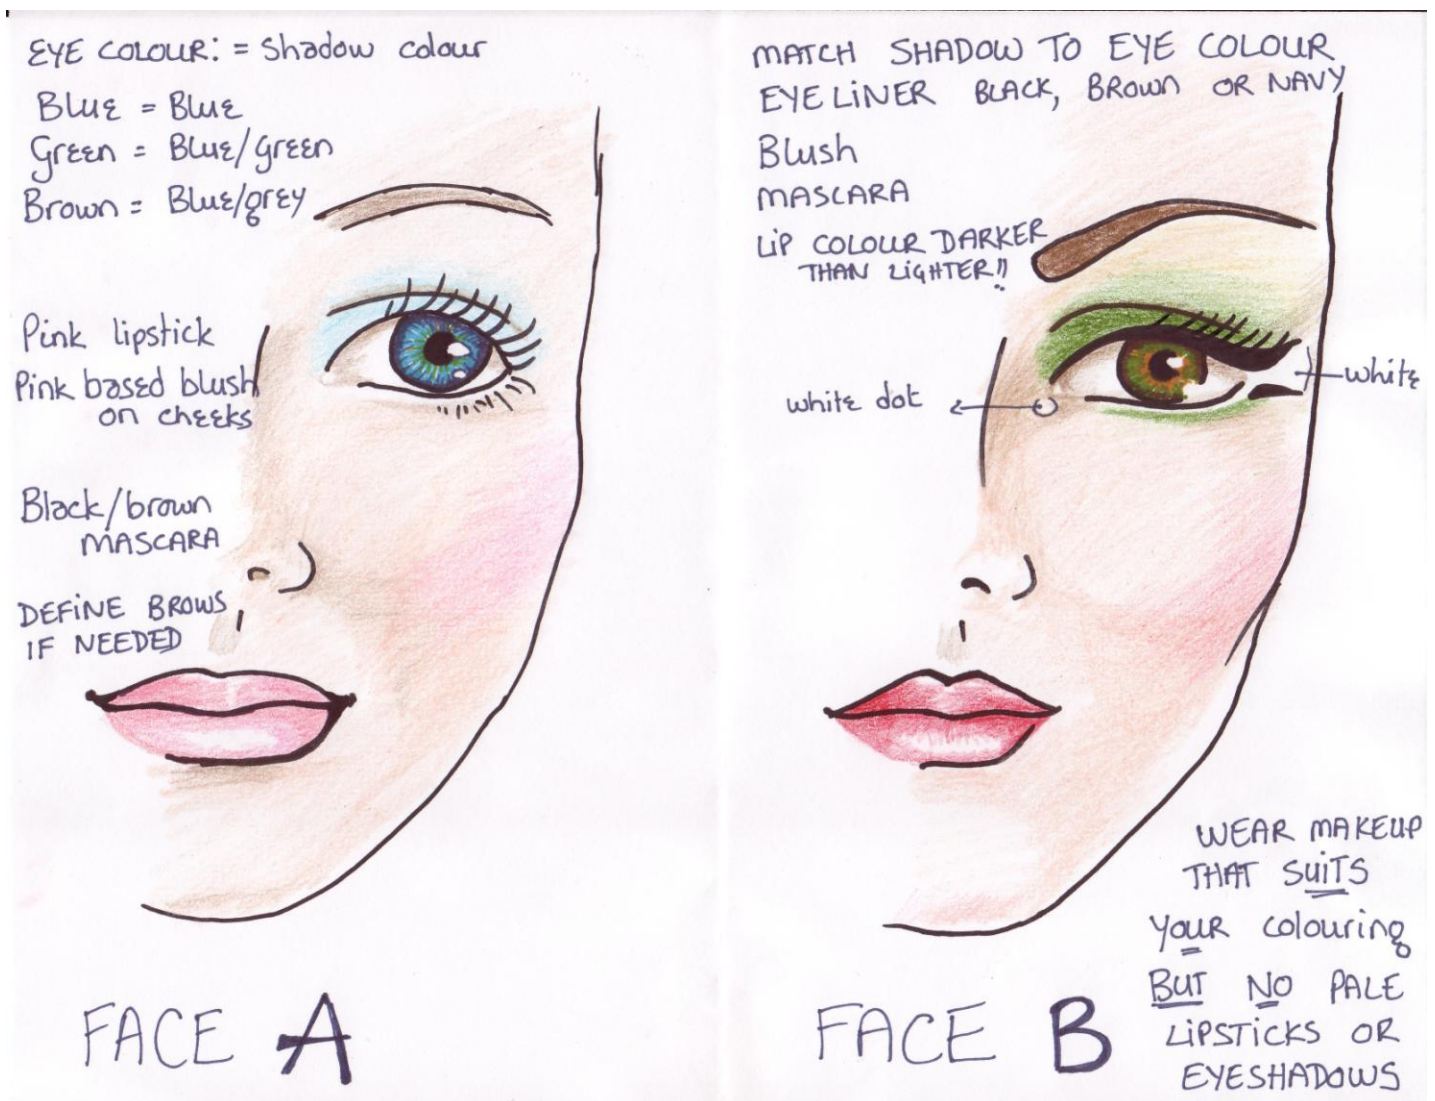 EYE COLOUR: = Shadow colour
Blue = Blue
Green = Blue/green
Brown = Blue/grey
Pink lipstick
Pink based blush
on cheeks
Black/brown
MASCARA
DEFINE BROWS
IF NEEDED
FACE A
MATCH SHADOW TO EYE COLOUR
EYELINER BLACK, BROWN OR NAVY
Blush
MASCARA
LIP COLOUR DARKER
THAN LIGHTER!!
white dot
white
WEAR MAKEUP
THAT SUITS
YOUR colouring
BUT NO PALE
LIPSTICKS OR
EYESHADOWS
FACE B